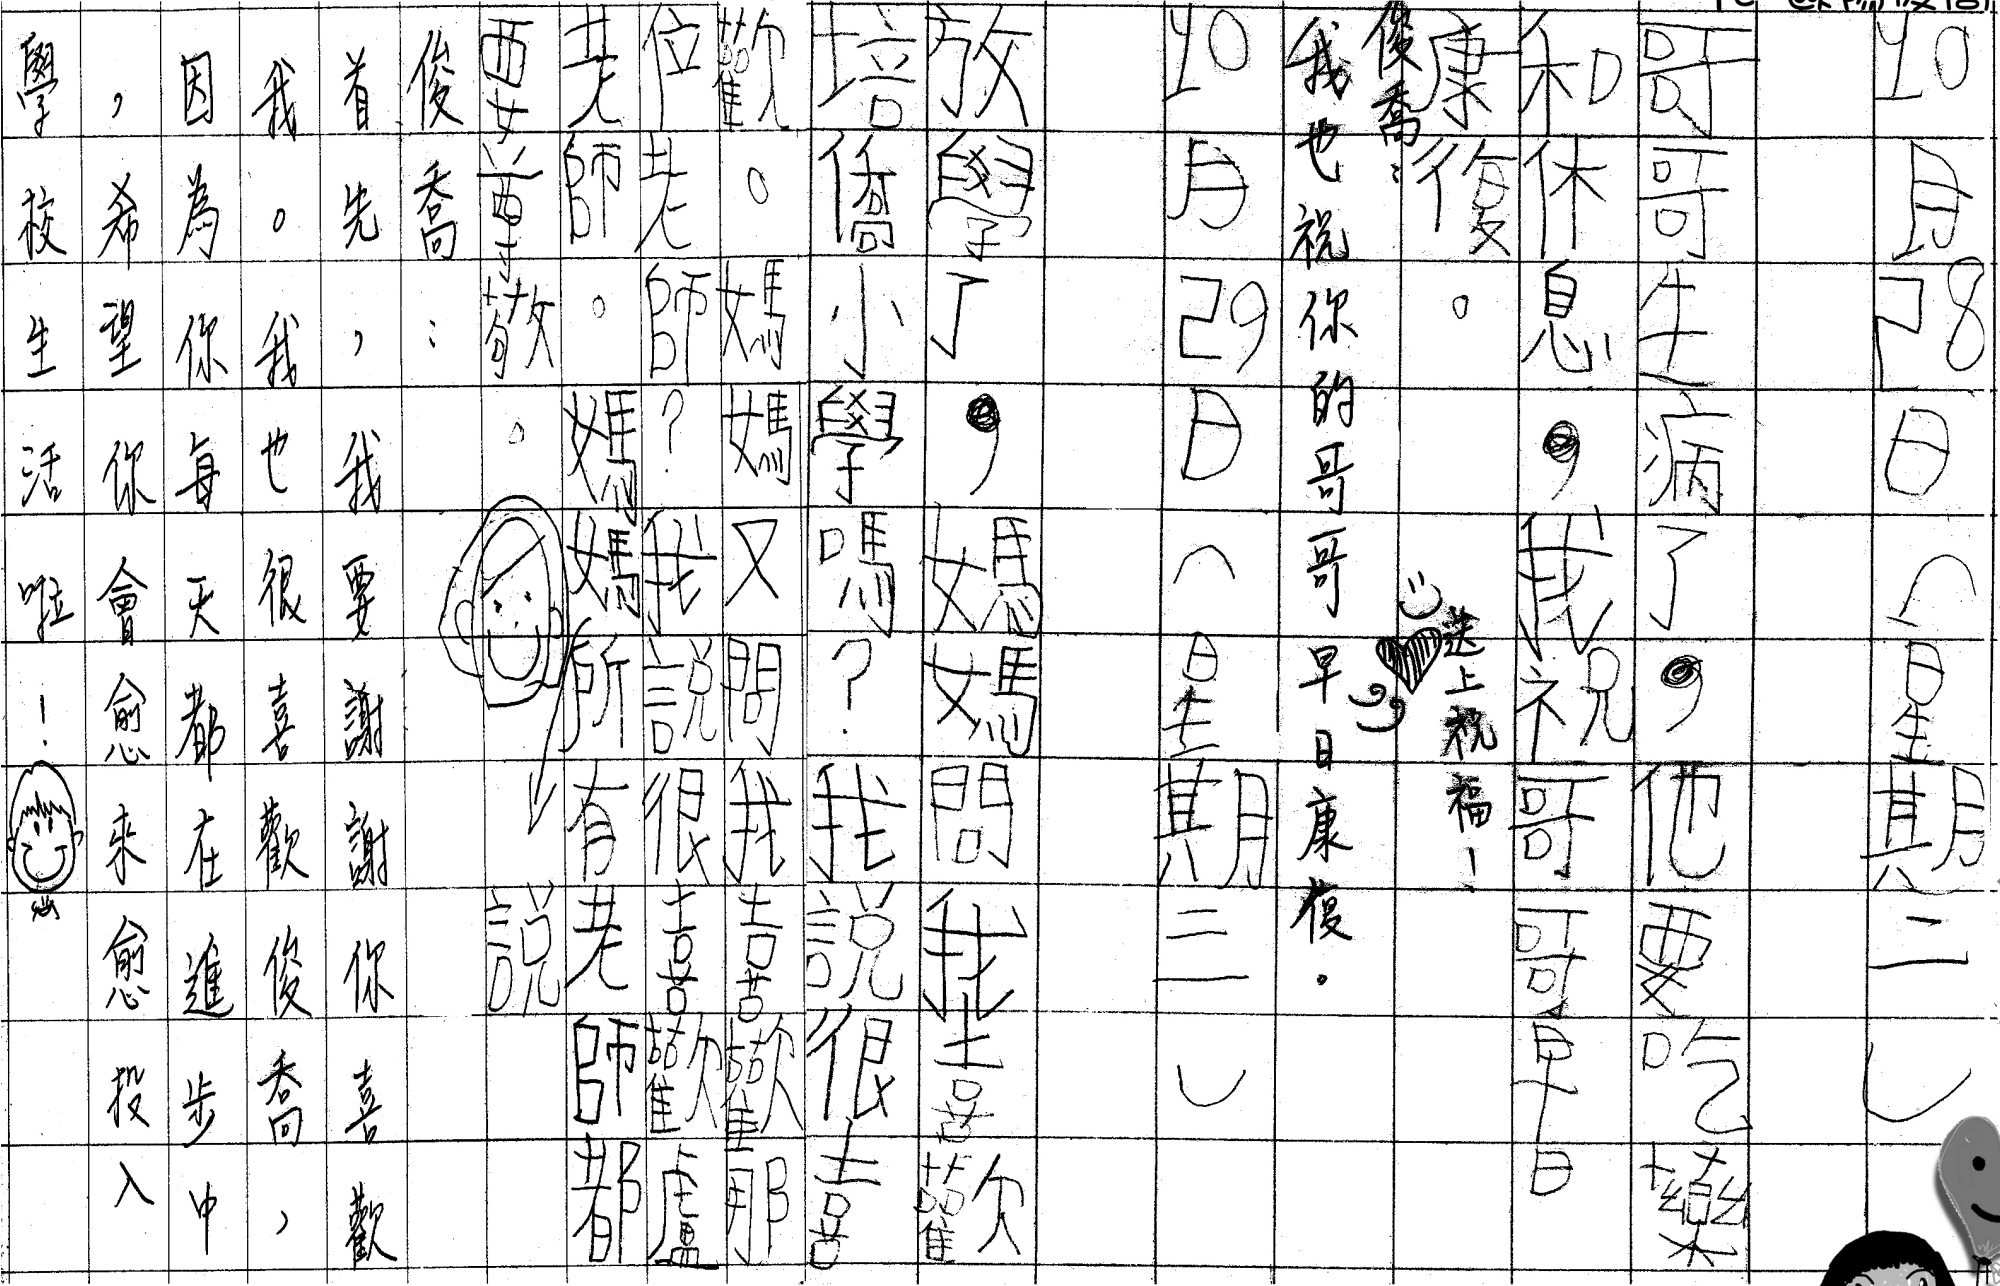 10月28日(星期二)
哥哥生病了,他要吃藥
和休息,我祝哥哥早日
康復。
送上祝福!
俊喬:
我也祝你的哥哥早日康復.
10月29日(星期三)
放學了,媽媽問我喜歡
培僑小學嗎?我說很喜
歡。媽媽又問我喜歡那
位老師?我說很喜歡盧
老師。媽媽所有老師都
要尊敬。
說
俊喬:
首先,我要謝謝你喜歡
我。我也很喜歡俊喬,
因為你每天都在進步中
,希望你會愈來愈投入
學校生活啦!